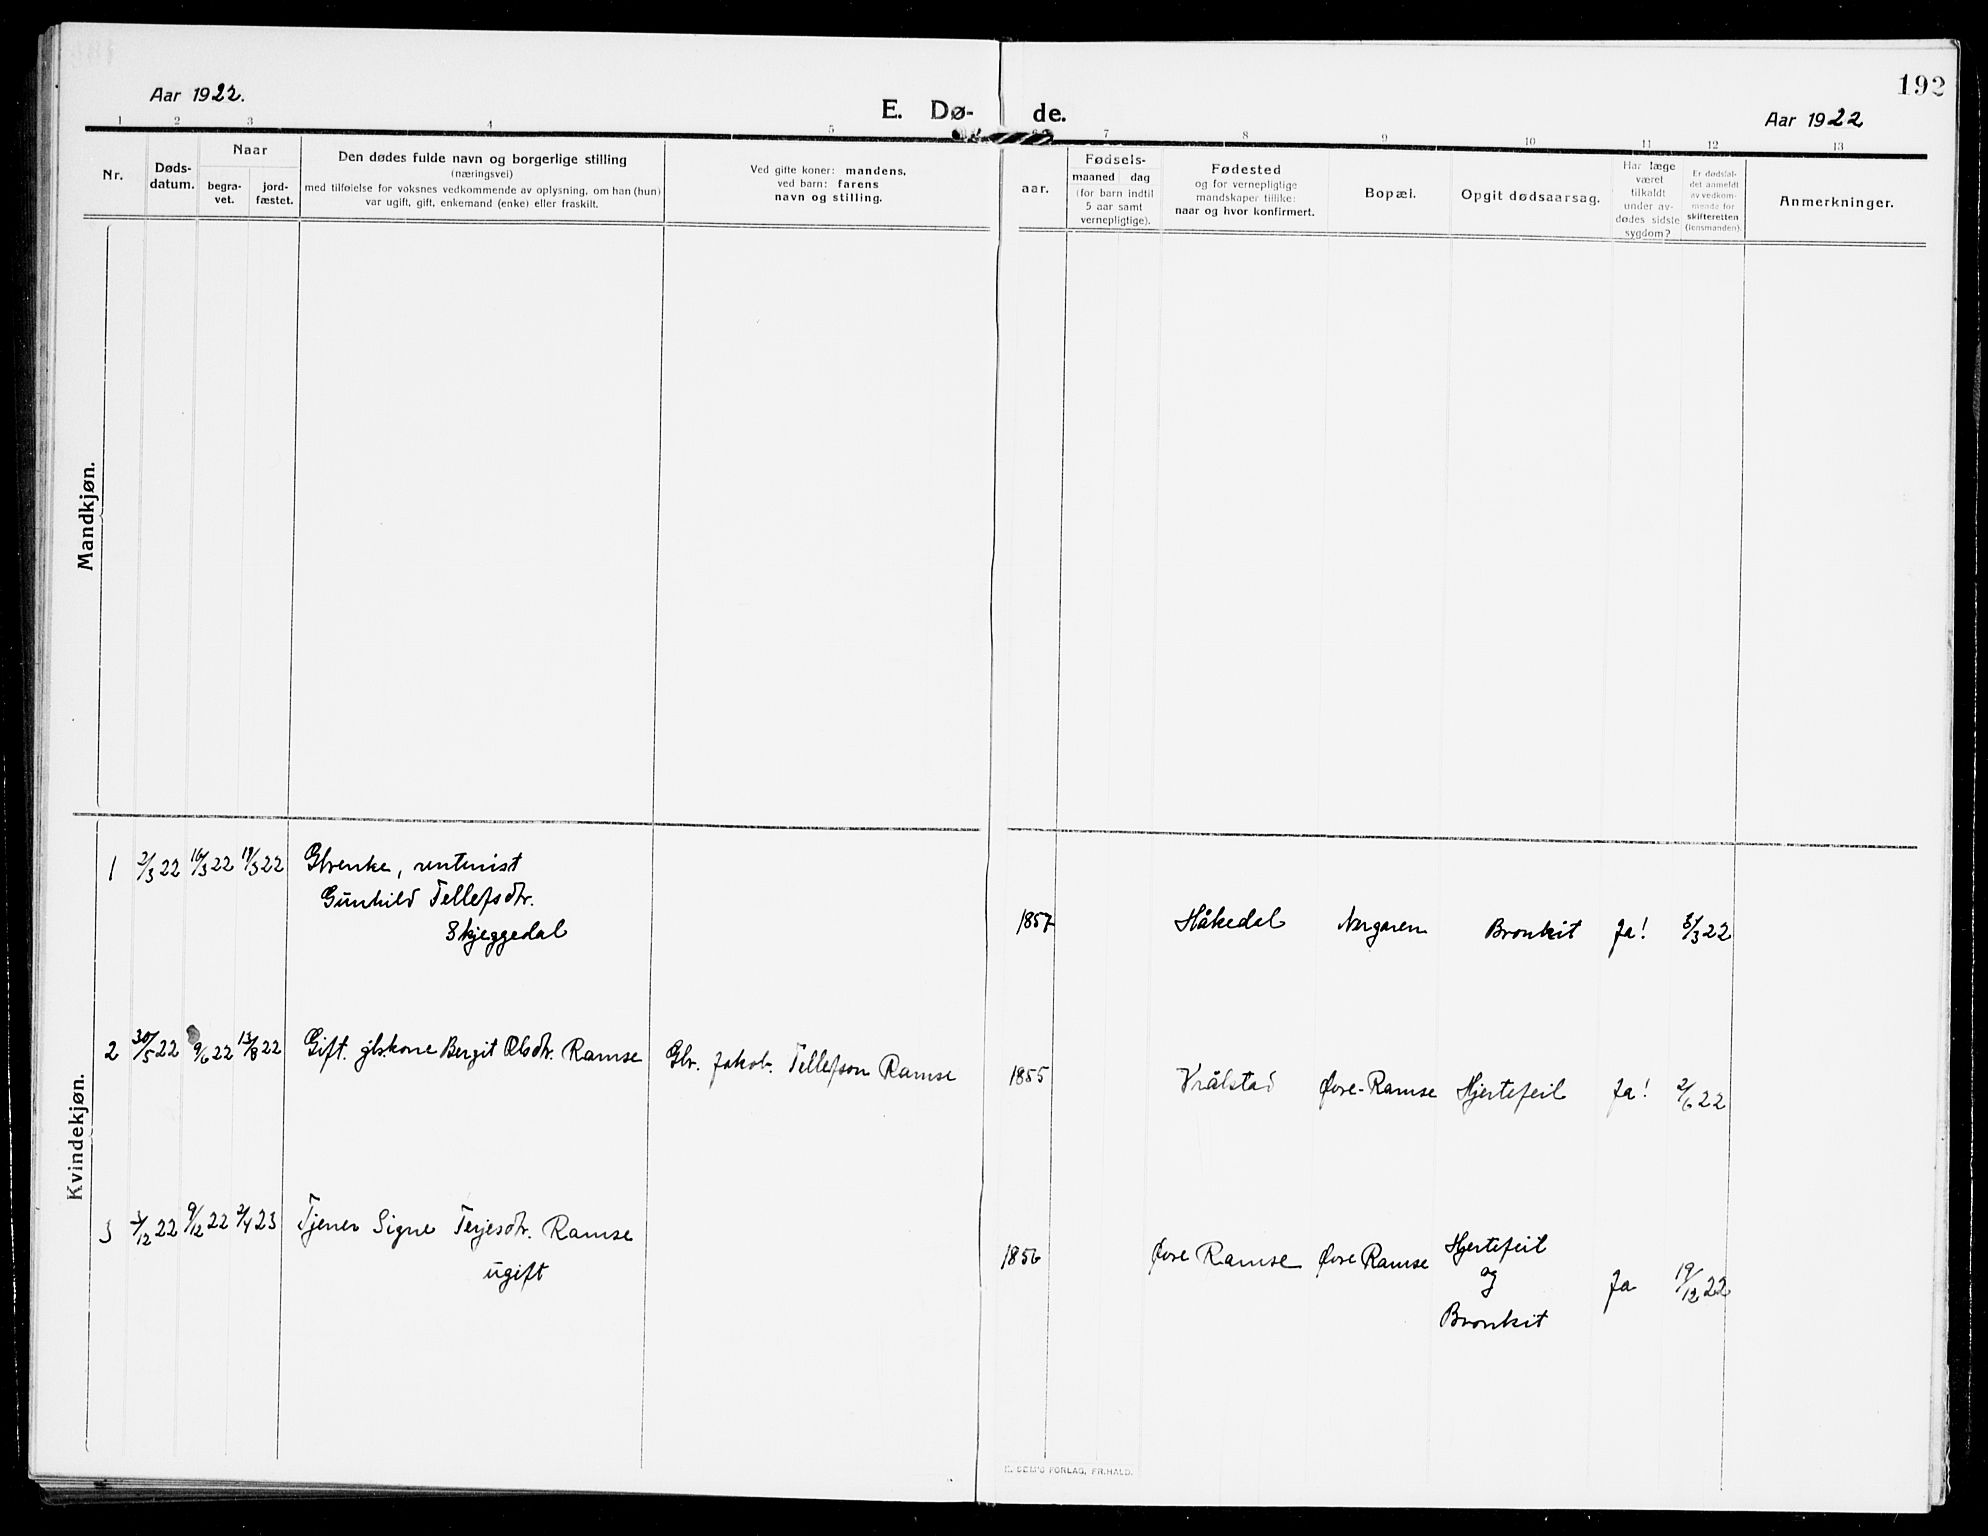 192
Aar 1922.
E. Dø-
de.
Aar 1922
1 2 3 4 5 7 8 9 10 11 12 13 13
Nr.
Døds-
datum.
Naar
begra-
vet.
jord-
fæstet.
Den dødes fulde navn og borgerlige stilling
(næringsvei)
med tilføielse for voksnes vedkommende av oplysning, om han (hun)
var ugift, gift, enkemand (enke) eller fraskilt.
Ved gifte koner: mandens,
ved barn: farens
navn og stilling.
aar.
Fødsels-
maaned dag
(for barn indtil
5 aar samt
vernepligtige).
Fødested
og for vernepligtige
mandskaper tillike:
naar og hvor konfirmert.
Bopæl.
Opgit dødsaarsag.
Har læge
været
tilkaldt
under av-
dødes sidste
sygdom?
Er dødsfal-
det anmeldt
av vedkom-
mende for
skifteretten
(lensmanden).
Anmerkninger.
Mandkjøn.
Kvindekjøn.
1 2/3 22 16/3 22 19/3 22 Gbrenke, rentenist
Gunhild Tellefsdtr.
Skjeggedal
1857 Håkedal Nergaren Bronkit Ja! 3/3 22
2 30/5 22 9/6 22 13/8 22 Gift. gbrkone Bergit Olsdtr. Ramse Gbr. Jakob Tellefson Ramse 1855 Vrålstad Øvre-Ramse Hjertefeil Ja! 2/6 22
3 3/12 22 9/12 22 2/4 23 Tjener Signe Terjesdtr. Ramse
ugift
1856 Øvre Ramse Øvre Ramse Hjertefeil
og
Bronkit
Ja 19/12 22
E. SEM'S FORLAG, FR.HALD.